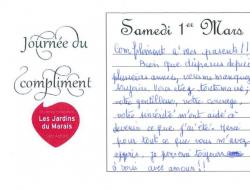 Journée du
compliment
Les Jardins
du Marais
Samedi 1er Mars
Compliment à mes parents !!
Bien que disparus depuis
plusieurs années, vous me manquez
toujours. Votre
votre gentillesse, votre courage,
votre sincérité m'ont aidé à
devenir ce que j'ai été. Merci
pour tout ce que vous m'avez
appris, je penserai toujours
à vous avec amour !!